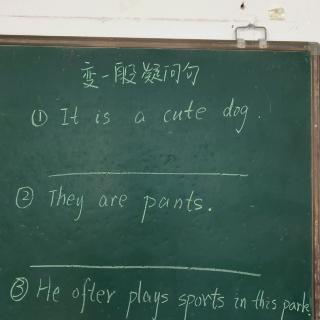 变一般疑问句
① It is a cute dog.
② They are pants.
③ He ofter plays sports in this park.